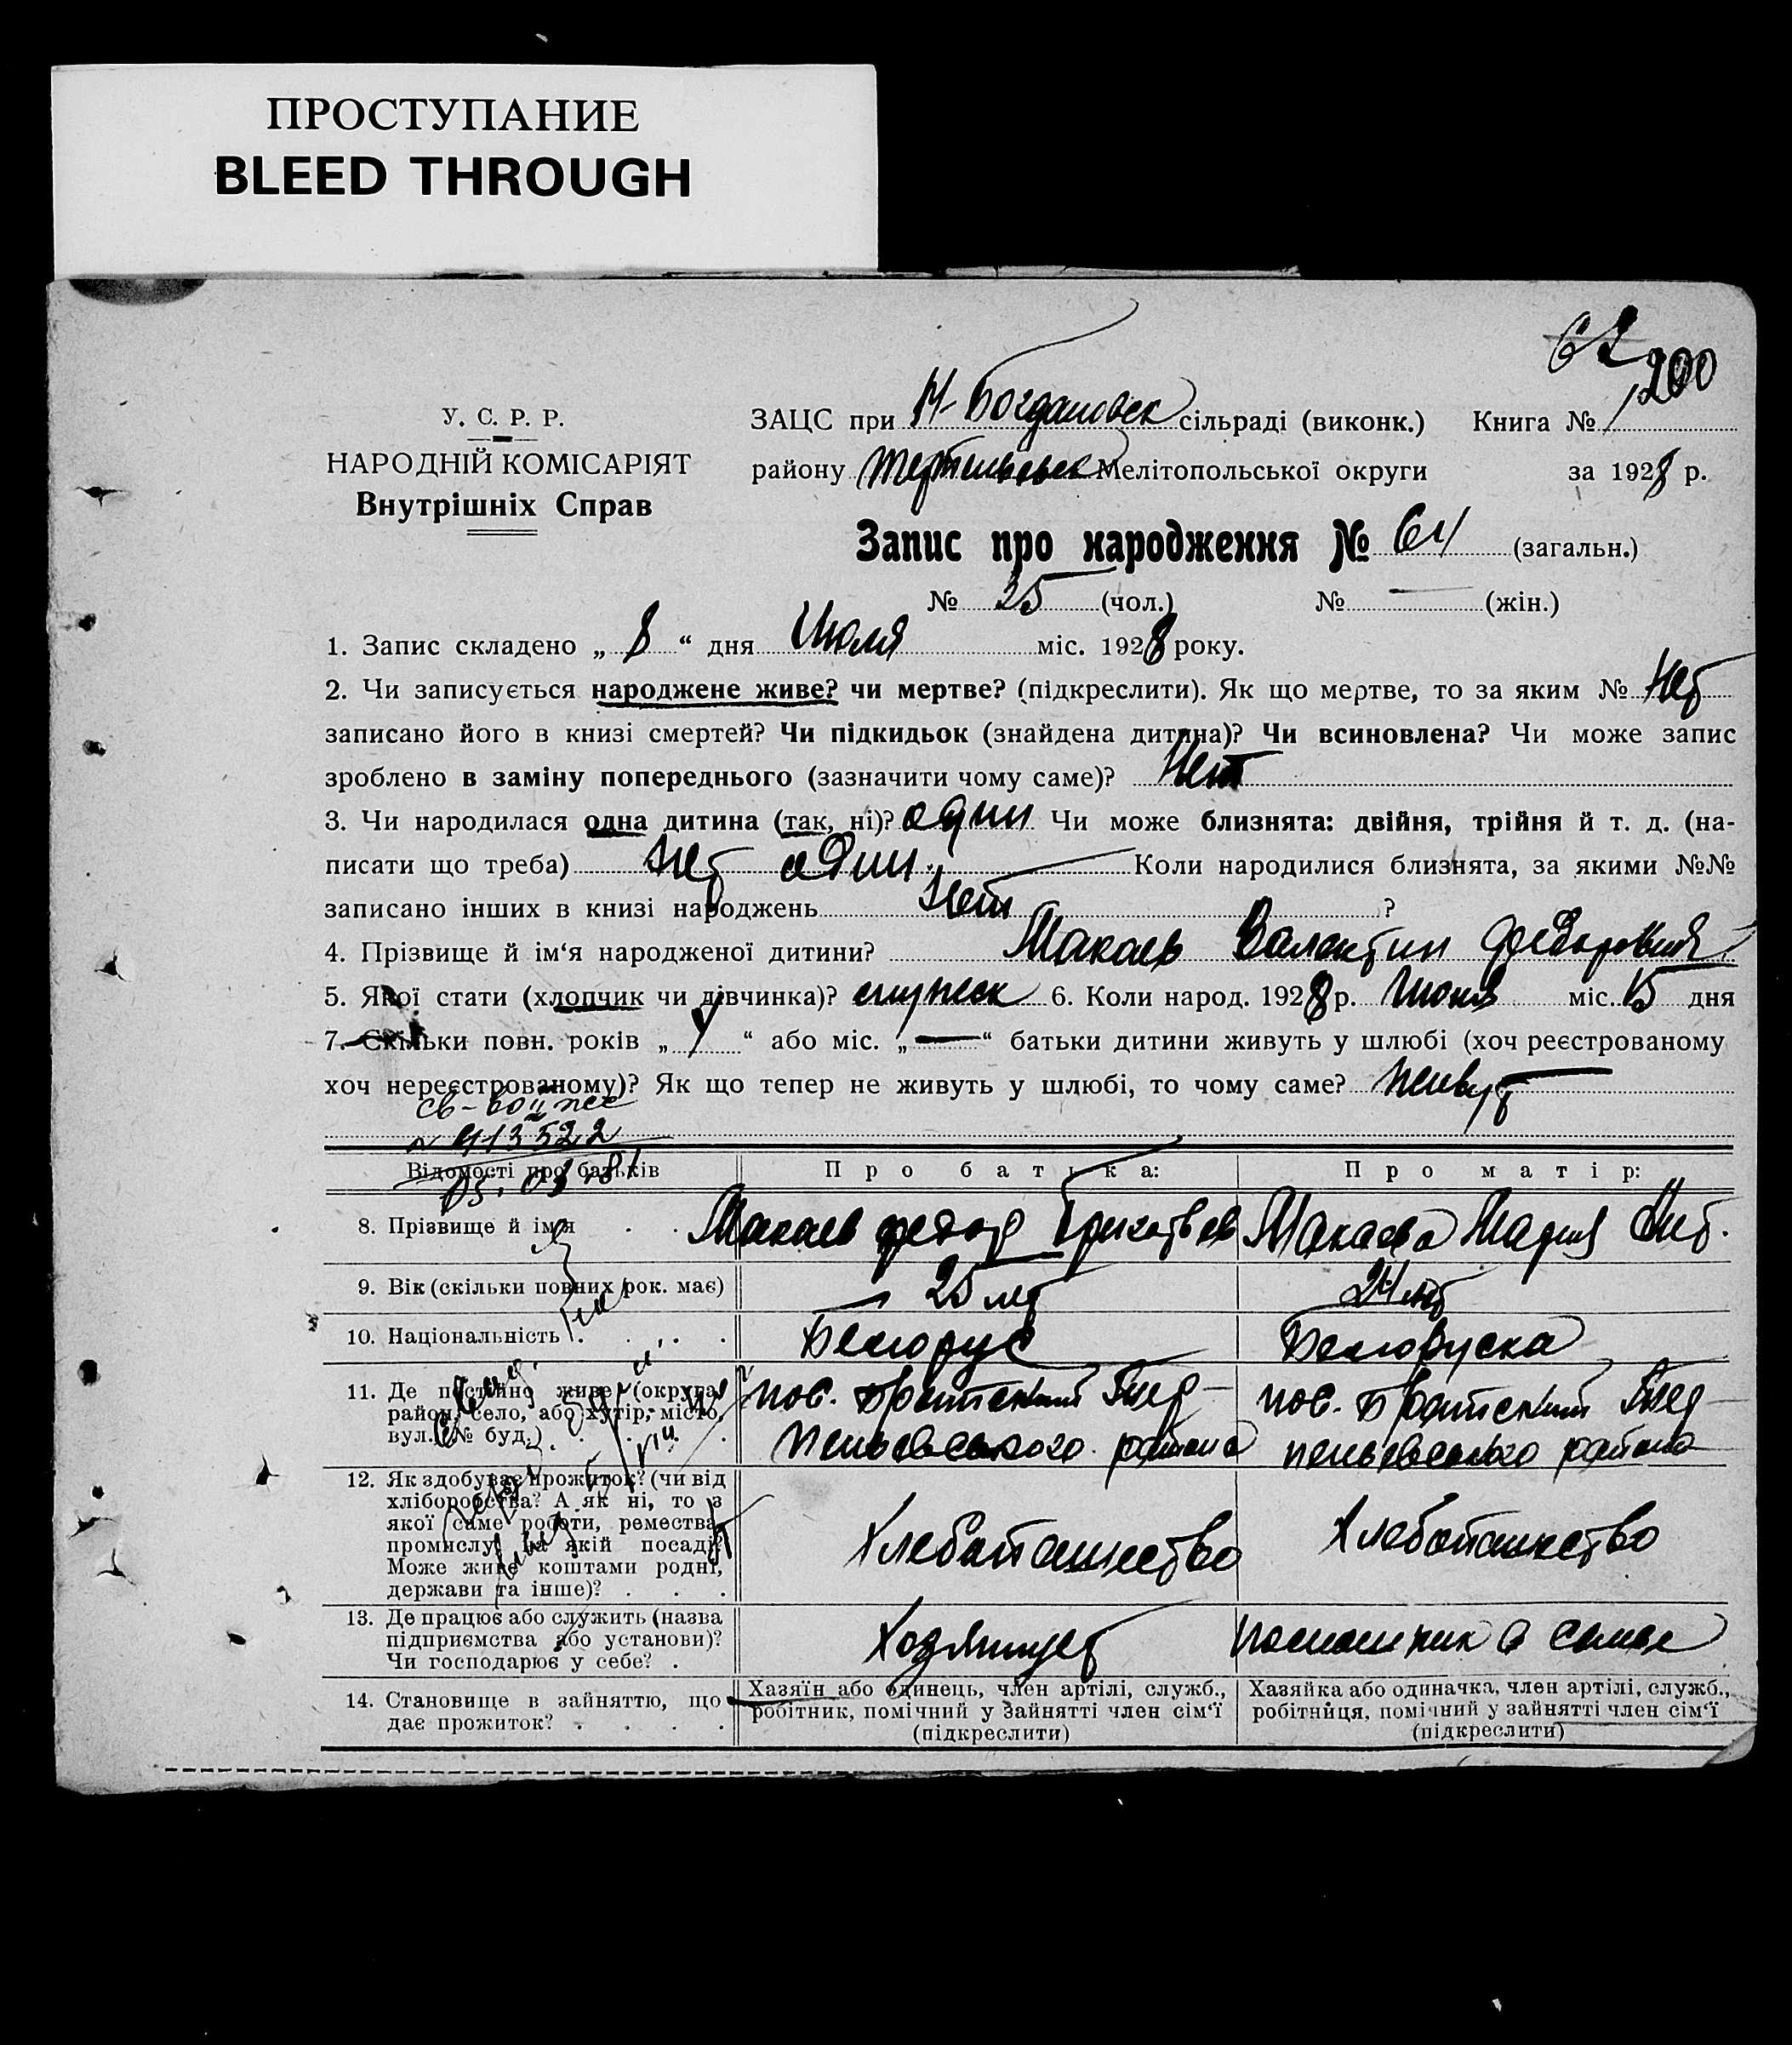 ПРОСТУПАНИЕ
BLEED THROUGH
62
200
У. С. Р. Р.
НАРОДНІЙ КОМІСАРІЯТ
Внутрішніх Справ
ЗАЦС при М-Богдановск сільраді (виконк.) Книга № 1
району Мелітопольської округи за 1928 р.
Запис про народження № 64 (загальн.)
№ 25 (чол.) № — (жін.)
1. Запис складено „ 8 “ дня Июля міс. 1928 року.
2. Чи записується народжене живе? чи мертве? (підкреслити). Як що мертве, то за яким № Нет
записано його в книзі смертей? Чи підкидьок (знайдена дитина)? Чи всиновлена? Чи може запис
зроблено в заміну попереднього (зазначити чому саме)? Нет
3. Чи народилася одна дитина (так, ні)? один Чи може близнята: двійня, трійня й т. д. (на-
писати що треба) Нет один Коли народилися близнята, за якими №№
записано інших в книзі народжень Нет ?
4. Прізвище й ім‘я народженої дитини? Макаев Валентин Федорович
5. Якої стати (хлопчик чи дівчинка)? 6. Коли народ. 1928 р. Июня міс. 15 дня
7. Скільки повн. років „ 1 “ або міс. „ — “ батьки дитини живуть у шлюбі (хоч реєстрованому
хоч нереєстрованому)? Як що тепер не живуть у шлюбі, то чому саме? живут
№ 413522
Відомості про батьків Про батька: Про матір:
8. Прізвище й ім‘я . . Макаев Федор Макаева Мария
9. Вік (скільки повних рок. має) 25 лет 24 лет
10. Національність . . . . . Белорус Белоруска
11. Де постійно живе (округа,
район, село, або хутір, місто,
вул. № буд.) . . . .
пос. Братский
района
пос. Братский
района
12. Як здобуває прожиток? (чи від
хліборобства? А як ні, то з
якої саме роботи, ремества,
промислу, на якій посаді?
Може живе коштами родні,
держави та інше)? . . .
Хлебопашество
Хлебопашество
13. Де працює або служить (назва
підприємства або установи)?
Чи господарює у себе? .
Хозяинует
помошник в семье
14. Становище в зайняттю, що
дає прожиток? . . . .
Хазяїн або одинець, член артілі, служб.,
робітник, помічний у зайнятті член сім‘ї
(підкреслити)
Хазяйка або одиначка, член артілі, служб.,
робітниця, помічний у зайнятті член сім‘ї
(підкреслити)